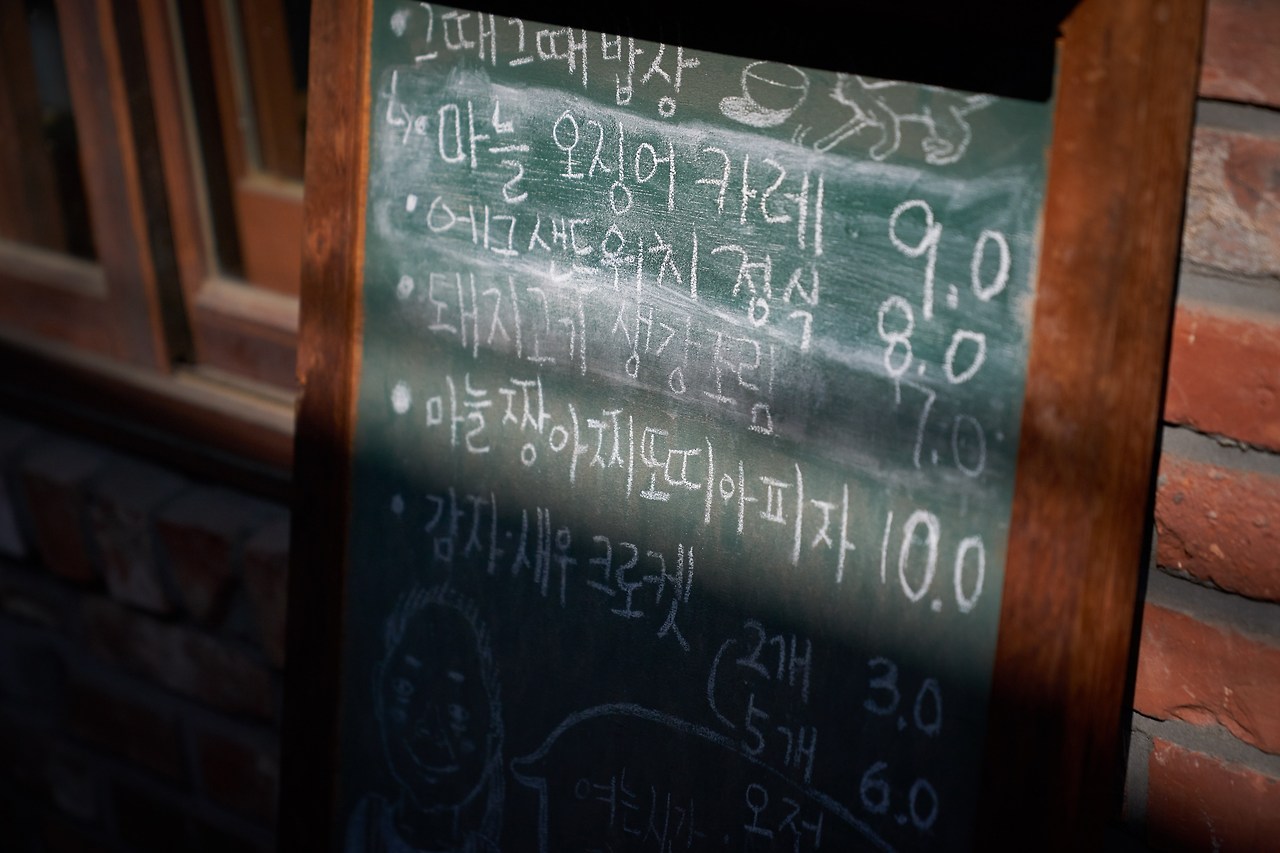 • 그때그때밥상
↳ 마늘 오징어 카레 9.0
• 에그샌드위치 정식 8.0
• 돼지고기 생강조림 7.0
• 마늘짱아찌또띠아피자 10.0
• 감자·새우 크로켓
2개 3.0
5개 6.0
여는시간. 오전